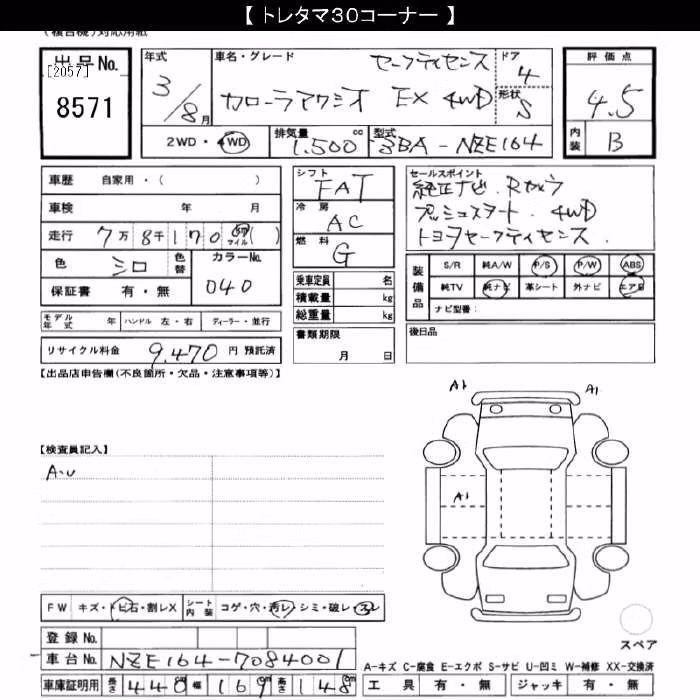 【 トレタマ30コーナー 】
(複合機)対応用紙
出品No.
[2057]
8571
年式
3/8月
車名・グレード
セーフティセンス
カローラアクシオ EX 4WD
ドア
4
形状
S
評価点
4.5
内装
B
2WD・4WD
排気量
1.500cc
型式
3BA-NZE164
車歴 自家用・( )
車検 年 月
走行 7万8千170 km マイル( )
色 シロ
色替
カラーNo.
040
保証書 有・無
シフト
FAT
冷房
AC
燃料
G
乗車定員 名
積載量 kg
総重量 kg
書類期限
月 日
セールスポイント
純正ナビ. Rカメラ
プッシュスタート. 4WD
トヨタセーフティセンス.
装備品
S/R 純A/W P/S P/W ABS
純TV 純ナビ 革シート 外ナビ エアB
ナビ型番:
後日品
モデル年式 年 ハンドル 左・右 ディーラー・並行
リサイクル料金 9.470 円 預託済
【出品店申告欄(不良箇所・欠品・注意事項等)】
A1 A1
A1
【検査員記入】
A・U
FW キズ・トビ石・割レX
シート内装 コゲ・穴・汚レ・シミ・破レ・スレ
登録 No.
車台 No. NZE164-7084001
車庫証明用 長さ 440 cm 幅 169 cm 高さ 148 cm
スペア
A-キズ C-腐食 E-エクボ S-サビ U-凹ミ W-補修 XX-交換済
工具 有・無 ジャッキ 有・無